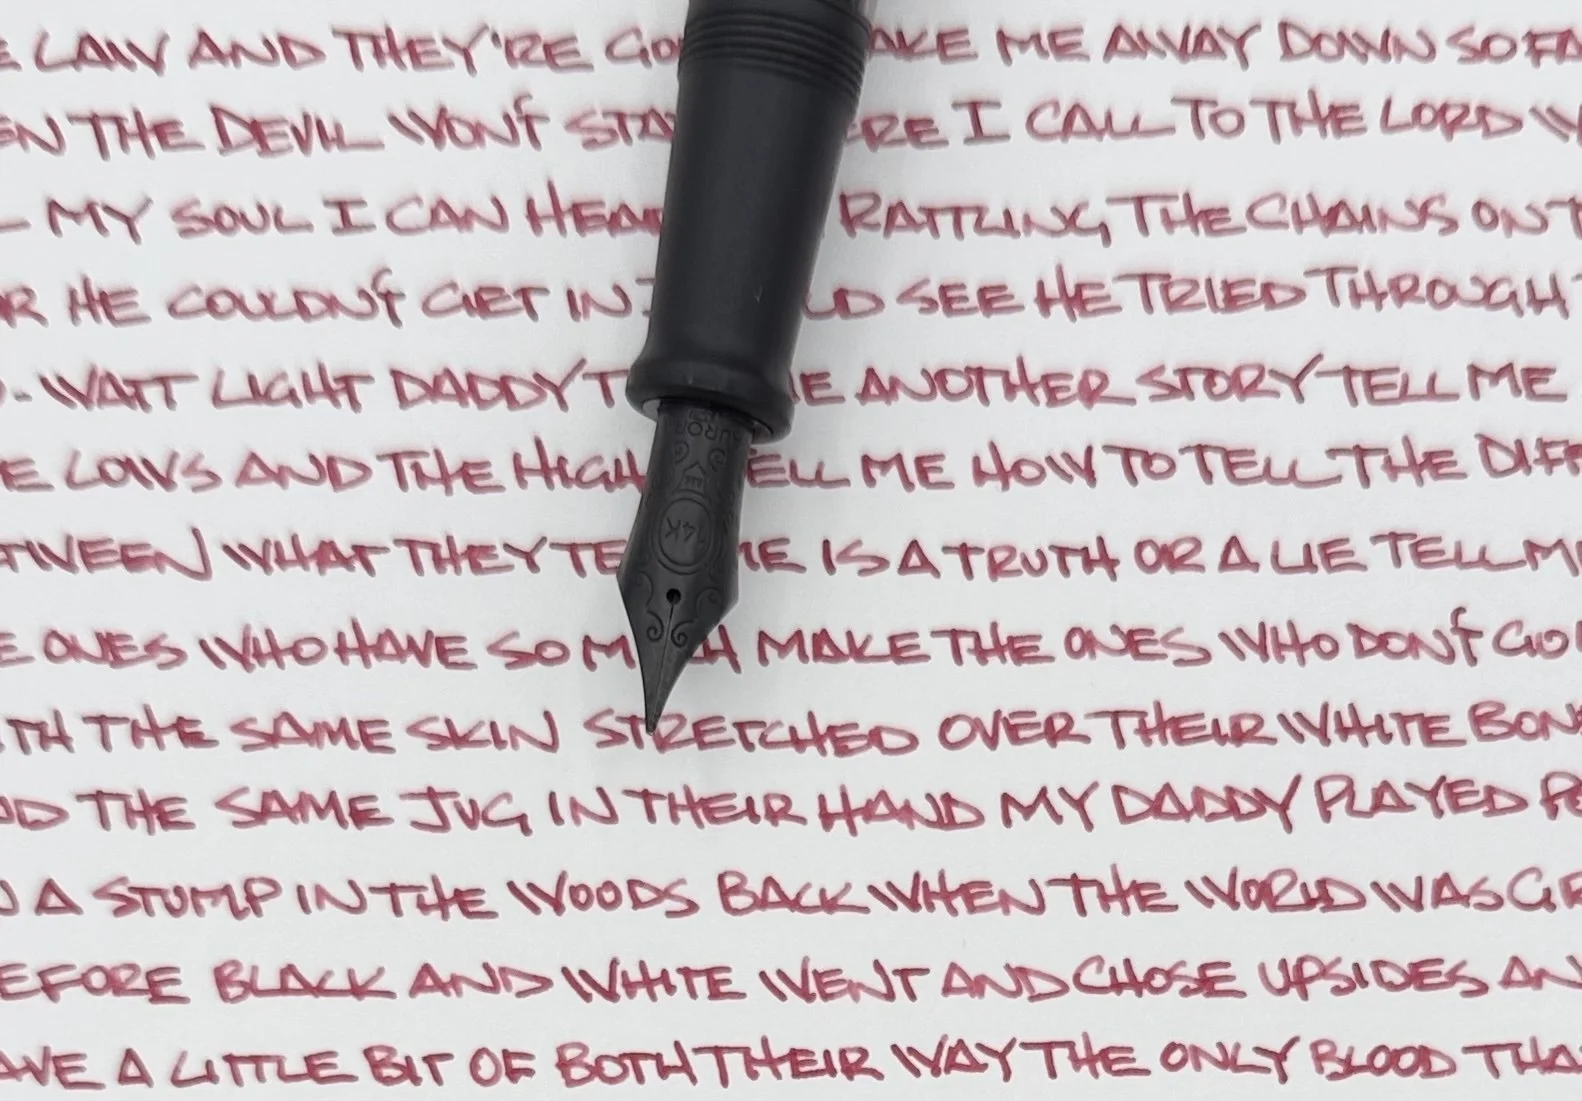 E LAW AND THEY'RE GO AKE ME AWAY DOWN SO FA
EN THE DEVIL WON'T STA ERE I CALL TO THE LORD W
L MY SOUL I CAN HEAR RATTLING THE CHAINS ON T
OR HE COULDN'T GET IN I LD SEE HE TRIED THROUGH T
- WATT LIGHT DADDY T ME ANOTHER STORY TELL ME
HE LOWS AND THE HIGH TELL ME HOW TO TELL THE DIFF
TWEEN WHAT THEY TE ME IS A TRUTH OR A LIE TELL ME
E ONES WHO HAVE SO M CH MAKE THE ONES WHO DON'T GO
ITH THE SAME SKIN STRETCHED OVER THEIR WHITE BON
ND THE SAME JUG IN THEIR HAND MY DADDY PLAYED PO
N A STUMP IN THE WOODS BACK WHEN THE WORLD WAS GR
EFORE BLACK AND WHITE WENT AND CHOSE UPSIDES AN
AVE A LITTLE BIT OF BOTH THEIR WAY THE ONLY BLOOD THA
AURORA
14K